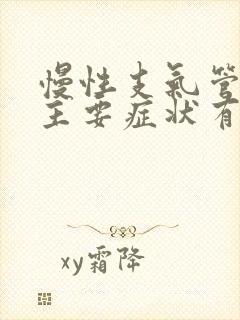 慢性支氣管
主要症状有
xy霜降